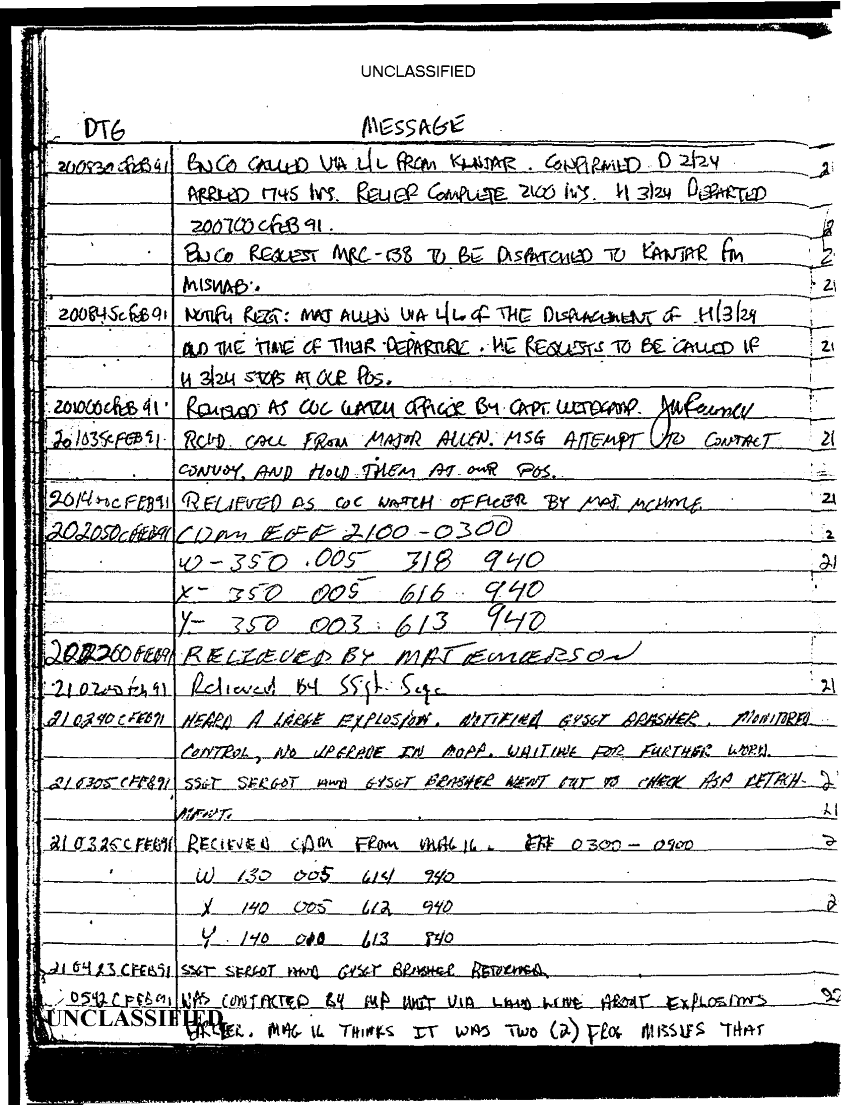 UNCLASSIFIED
DTG MESSAGE
200530CFEB91 BN CO CALLED VIA L/L FROM KANJAR. CONFIRMED D 2/24 2
ARRIVED 1745 hrs. RELIEF COMPLETE 2100 hrs. H 3/24 DEPARTED
200700CFEB91.
BN CO REQUEST MRC-138 TO BE DISPATCHED TO KANJAR fm 2
MISHAB. 21
200845CFEB91 NOTIFY REGT: MAJ ALLEN VIA L/L OF THE DISPLACEMENT OF H/3/24
AND THE TIME OF THEIR DEPARTURE. HE REQUESTS TO BE CALLED IF 21
H 3/24 STOPS AT OUR POS.
201000CFEB91 RELIEVED AS COC WATCH OFFICER BY CAPT.
201035CFEB91 RCVD. CALL FROM MAJOR ALLEN. MSG ATTEMPT TO CONTACT 21
CONVOY, AND HOLD THEM AT OUR POS.
201400CFEB91 RELIEVED AS COC WATCH OFFICER BY MAJ. 21
202050CFEB91 CDM EFF 2100-0300 2
W-350 .005 318 940 21
X- 350 005 616 940
Y- 350 003 613 940
RELIEVED BY MAJ EMERSON
Relieved By SSgt. 21
210240CFEB91 HEARD A LARGE EXPLOSION. NOTIFIED GYSGT BRASHER. MONITORED
CONTROL, NO UPGRADE IN MOPP. WAITING FOR FURTHER WORD.
210305CFEB91 SSGT SERGOT AND GYSGT BRASHER WENT OUT TO CHECK ASP DETACH- 2
MENT. 21
210325CFEB91 RECIEVED CDM FROM MAG 16. EFF 0300-0900 2
W 130 005 614 940
X 140 005 612 940 2
Y 140 613 840
210423CFEB91 SSGT SERGOT AND GYSGT BRASHER RETURNED.
0542CFEB91 WAS CONTACTED BY MP UNIT VIA LAND LINE ABOUT EXPLOSIONS
UNCLASSIFIED
EARLIER. MAG 16 THINKS IT WAS TWO (2) FROG MISSLES THAT